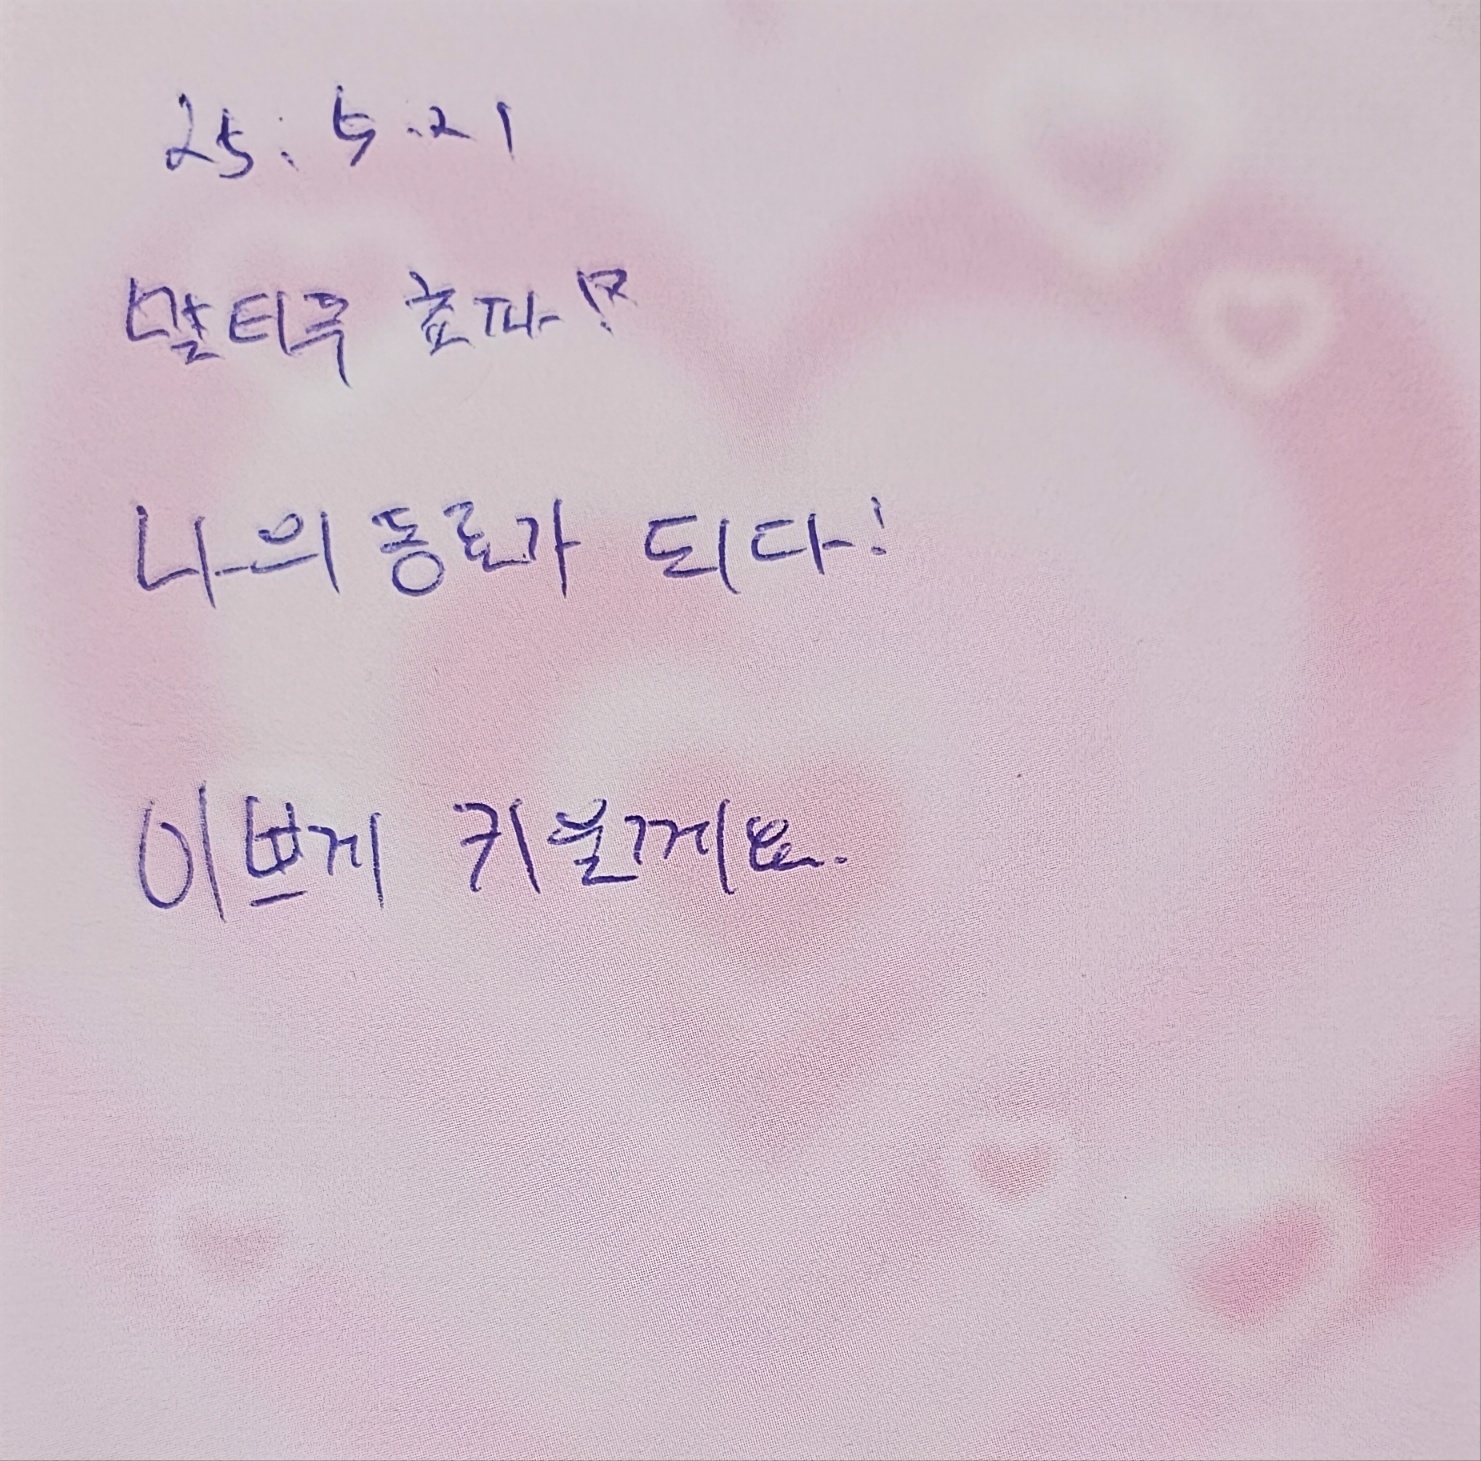 25. 5. 21
말티푸 초파!
나의 동료가 되다!
이쁘게 키울게요.